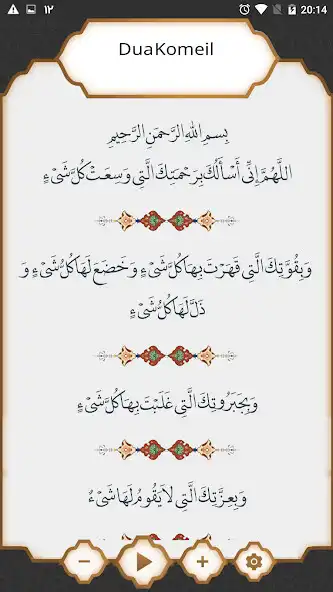 ١٢
20:14
DuaKomeil
بِسمِ اللهِ الرَّحمَنِ الرَّحِیمِ
اللَّهُمَّ إِنِّی أَسْأَلُكَ بِرَحْمَتِكَ الَّتِی وَسِعَتْ كُلَّ شَیْءٍ
وَ بِقُوَّتِكَ الَّتِی قَهَرْتَ بِهَا كُلَّ شَیْءٍ وَ خَضَعَ لَهَا كُلُّ شَیْءٍ وَ
ذَلَّ لَهَا كُلُّ شَیْءٍ
وَ بِجَبَرُوتِكَ الَّتِی غَلَبْتَ بِهَا كُلَّ شَیْءٍ
وَ بِعِزَّتِكَ الَّتِی لاَ یَقُومُ لَهَا شَیْءٌ